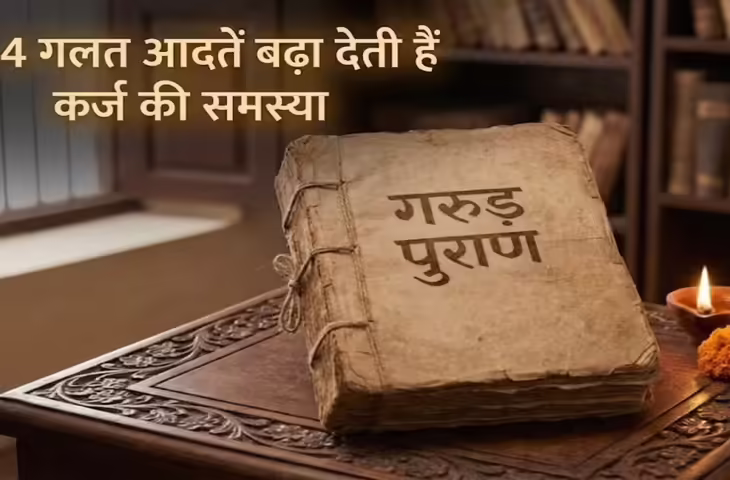 4 गलत आदतें बढ़ा देती हैं
कर्ज की समस्या
गरुड़
पुराण